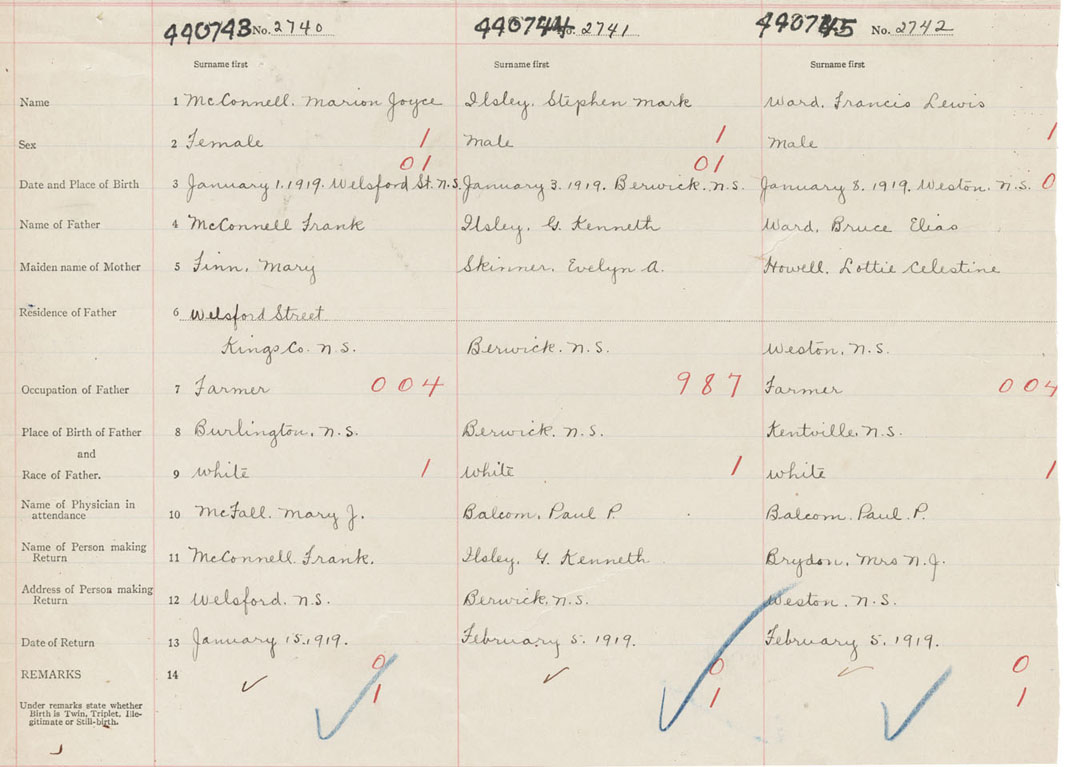 440743 No. 2740 440744 No. 2741 440745 No. 2742
Surname first Surname first Surname first
Name 1 McConnell. Marion Joyce Ilsley, Stephen Mark Ward, Francis Lewis
Sex 2 Female 1 Male 1 Male 1
01 01
Date and Place of Birth 3 January 1. 1919. Welsford St. N.S. January 3. 1919. Berwick. N.S. January 8. 1919. Weston. N.S. 0
Name of Father 4 McConnell Frank Ilsley, G. Kenneth Ward, Bruce Elias
Maiden name of Mother 5 Finn, Mary Skinner, Evelyn A. Howell, Lottie Celestine
Residence of Father 6 Welsford Street
Kings Co. N.S. Berwick. N.S. Weston, N.S.
Occupation of Father 7 Farmer 004 987 Farmer 004
Place of Birth of Father 8 Burlington, N.S. Berwick. N.S. Kentville, N.S.
and
Race of Father. 9 White 1 White 1 White 1
Name of Physician in
attendance 10 McFall. Mary J. Balcom, Paul P. Balcom. Paul. P.
Name of Person making
Return 11 McConnell. Frank. Ilsley, G. Kenneth Brydon, Mrs N.J.
Address of Person making
Return 12 Welsford. N.S. Berwick, N.S. Weston. N.S.
Date of Return 13 January 15. 1919. February 5. 1919. February 5. 1919.
0 0 0
REMARKS 14
1 1 1
Under remarks state whether
Birth is Twin, Triplet, Ille-
gitimate or Still-birth.